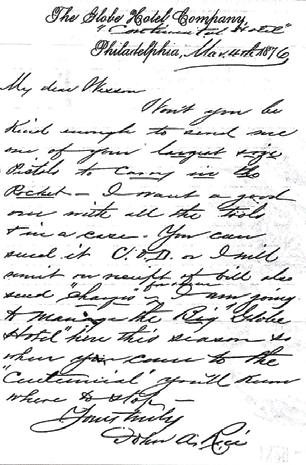 The Globe Hotel Company,
"Continental Hotel"
Philadelphia, Mar. 4th 1876
My dear Wesson
Won't you be
kind enough to send me
one of your largest size
Pistols to carry in the
Pocket — I want a good
one with all the tools
& in a case. You can
send it C.O.D. or I will
remit on receipt of bill also
send "charges" for same I am going
to manage the "Big Globe
Hotel" here this season so
when you come to the
"Centennial" you'll know
where to stop —
Yours truly
John A. Rice